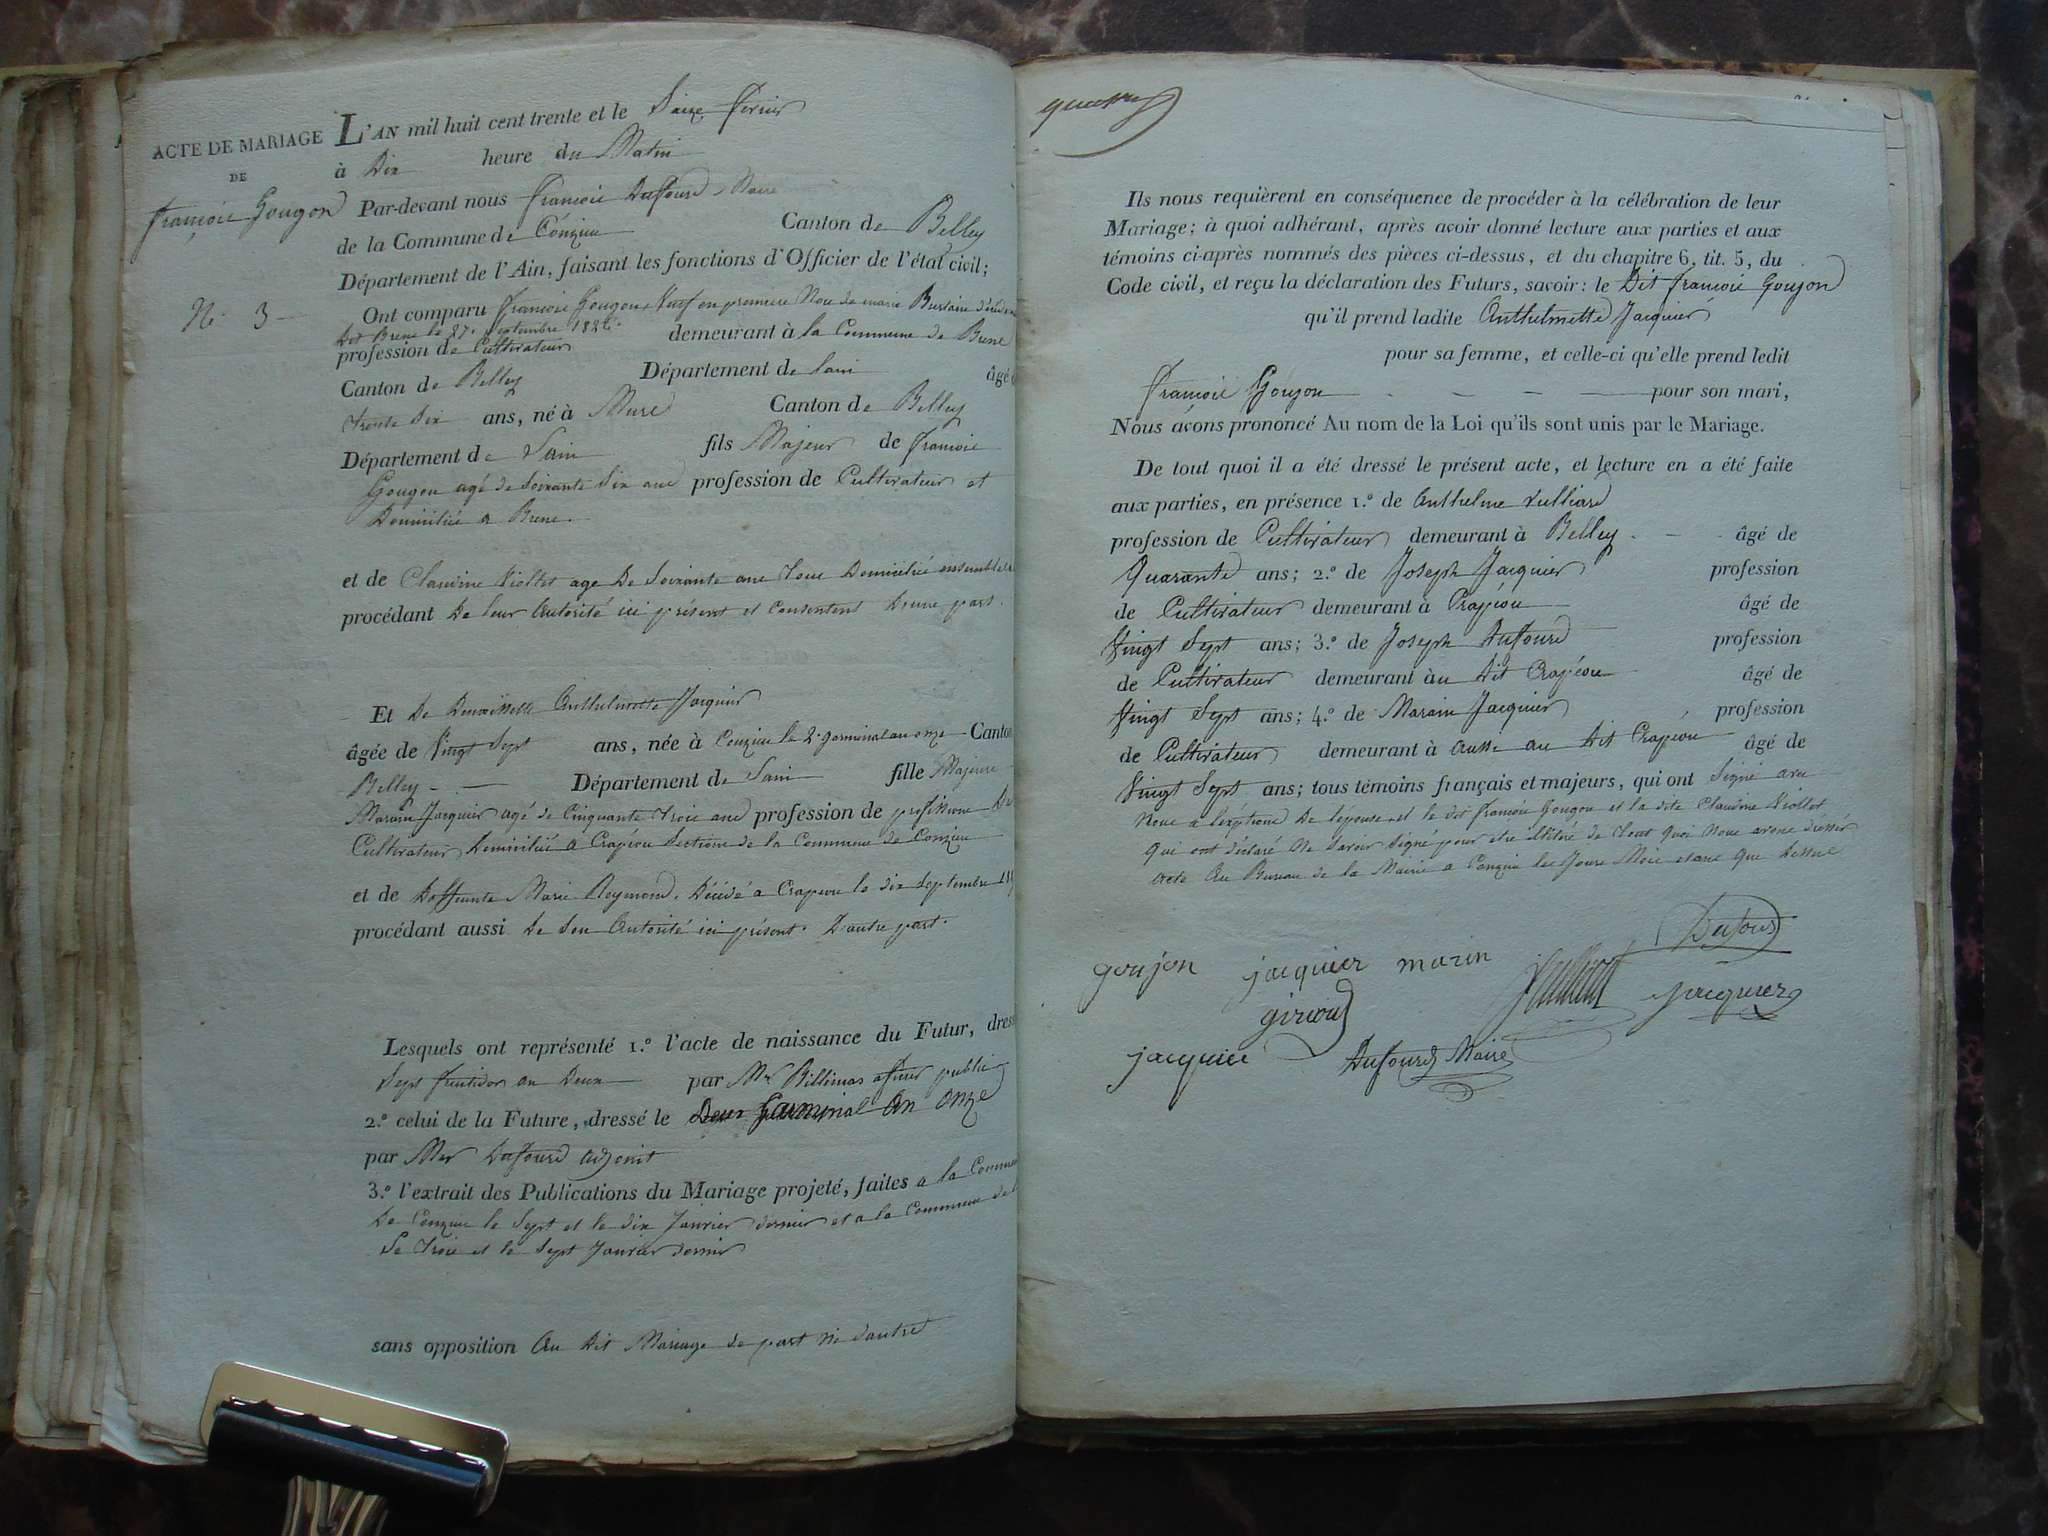 ACTE DE MARIAGE
DE
françois Gougon
N.o 3
L'AN mil huit cent trente et le Saize fevrier
à Dix heure du Matin
Par-devant nous francois Dufourd Maire
de la Commune de Conzieu Canton de Belley
Département de l'Ain, faisant les fonctions d'Officier de l'état civil;
Ont comparu francois Gougon Veuf en premiere Noce de marie
Dit Brene le 27. Septembre
profession de Cultivateur demeurant à la Commune de Brene
Canton de Belley Département de lain âgé
trente Six ans, né à Canton de Belley
Département de Lain fils Majeur de francois
Gougon agé de Soixante Six ans profession de Cultivateur et
Domicilié a Brene.
et de Claudine Viollet age De Soixante ans tous Domicilié ensemble
procédant De leur Autorité ici présent et Consentent D'une part.
Et De Demoiselle Anthelmette Jacquier
âgée de Vingt Sept ans, née à Conzieu le 2. germinal an onze Canton
Belley Département de Lain fille Majeure
Marain Jacquier agé de Cinquante trois ans profession de profession De
Cultivateur Domicilié a Crapéou Section de la Commune de Conzieu
et de Deffeunte Marie Reymond. Décédé a Crapeou le dix Septembre
procédant aussi De Son Autorité ici présent. D'autre part.
Lesquels ont représenté 1.o l'acte de naissance du Futur, dressé
Sept fructidor an Deux par Mr Billimas officier public
2.o celui de la Future, dressé le Deux Germinal An onze
par Mr Dufourd adjoint
3.o l'extrait des Publications du Mariage projeté, faites a la Commune
De Conzieu le Sept et le dix Janvier dernier et a la Commune de
Le trois et le Sept Janvier dernier
sans opposition Au Dit Mariage de part Ni d'autre
quatre
Ils nous requièrent en conséquence de procéder à la célébration de leur
Mariage; à quoi adhérant, après avoir donné lecture aux parties et aux
témoins ci-après nommés des pièces ci-dessus, et du chapitre 6, tit. 5, du
Code civil, et reçu la déclaration des Futurs, savoir: le Dit francois Goujon
qu'il prend ladite Anthelmette Jacquier
pour sa femme, et celle-ci qu'elle prend ledit
francois Goujon pour son mari,
Nous avons prononcé Au nom de la Loi qu'ils sont unis par le Mariage.
De tout quoi il a été dressé le présent acte, et lecture en a été faite
aux parties, en présence 1.o de Anthelme Vulliard
profession de Cultivateur demeurant à Belley âgé de
Quarante ans; 2.o de Joseph Jacquier profession
de Cultivateur demeurant à Crapéou âgé de
Vingt Sept ans; 3.o de Joseph Dufourd profession
de Cultivateur demeurant àu Dit Crapéou âgé de
Vingt Sept ans; 4.o de Marain Jacquier profession
de Cultivateur demeurant à Ausse au Dit Crapéou âgé de
Vingt Sept ans; tous témoins français et majeurs, qui ont Signé avec
Nous a l'exption De l'épouse et le dit francois Gougon et la dite Claudine Viollet
Qui ont déclaré Ne Savoir Signé pour etre illitéré de tout quoi Nous avons dressér
acte Au Bureau de la Mairie a Conzieu les Jours Mois et ans Que Dessus
Dufourd
goujon jacquier marin
giriou
Jacquier
jacquier
Dufourd Maire